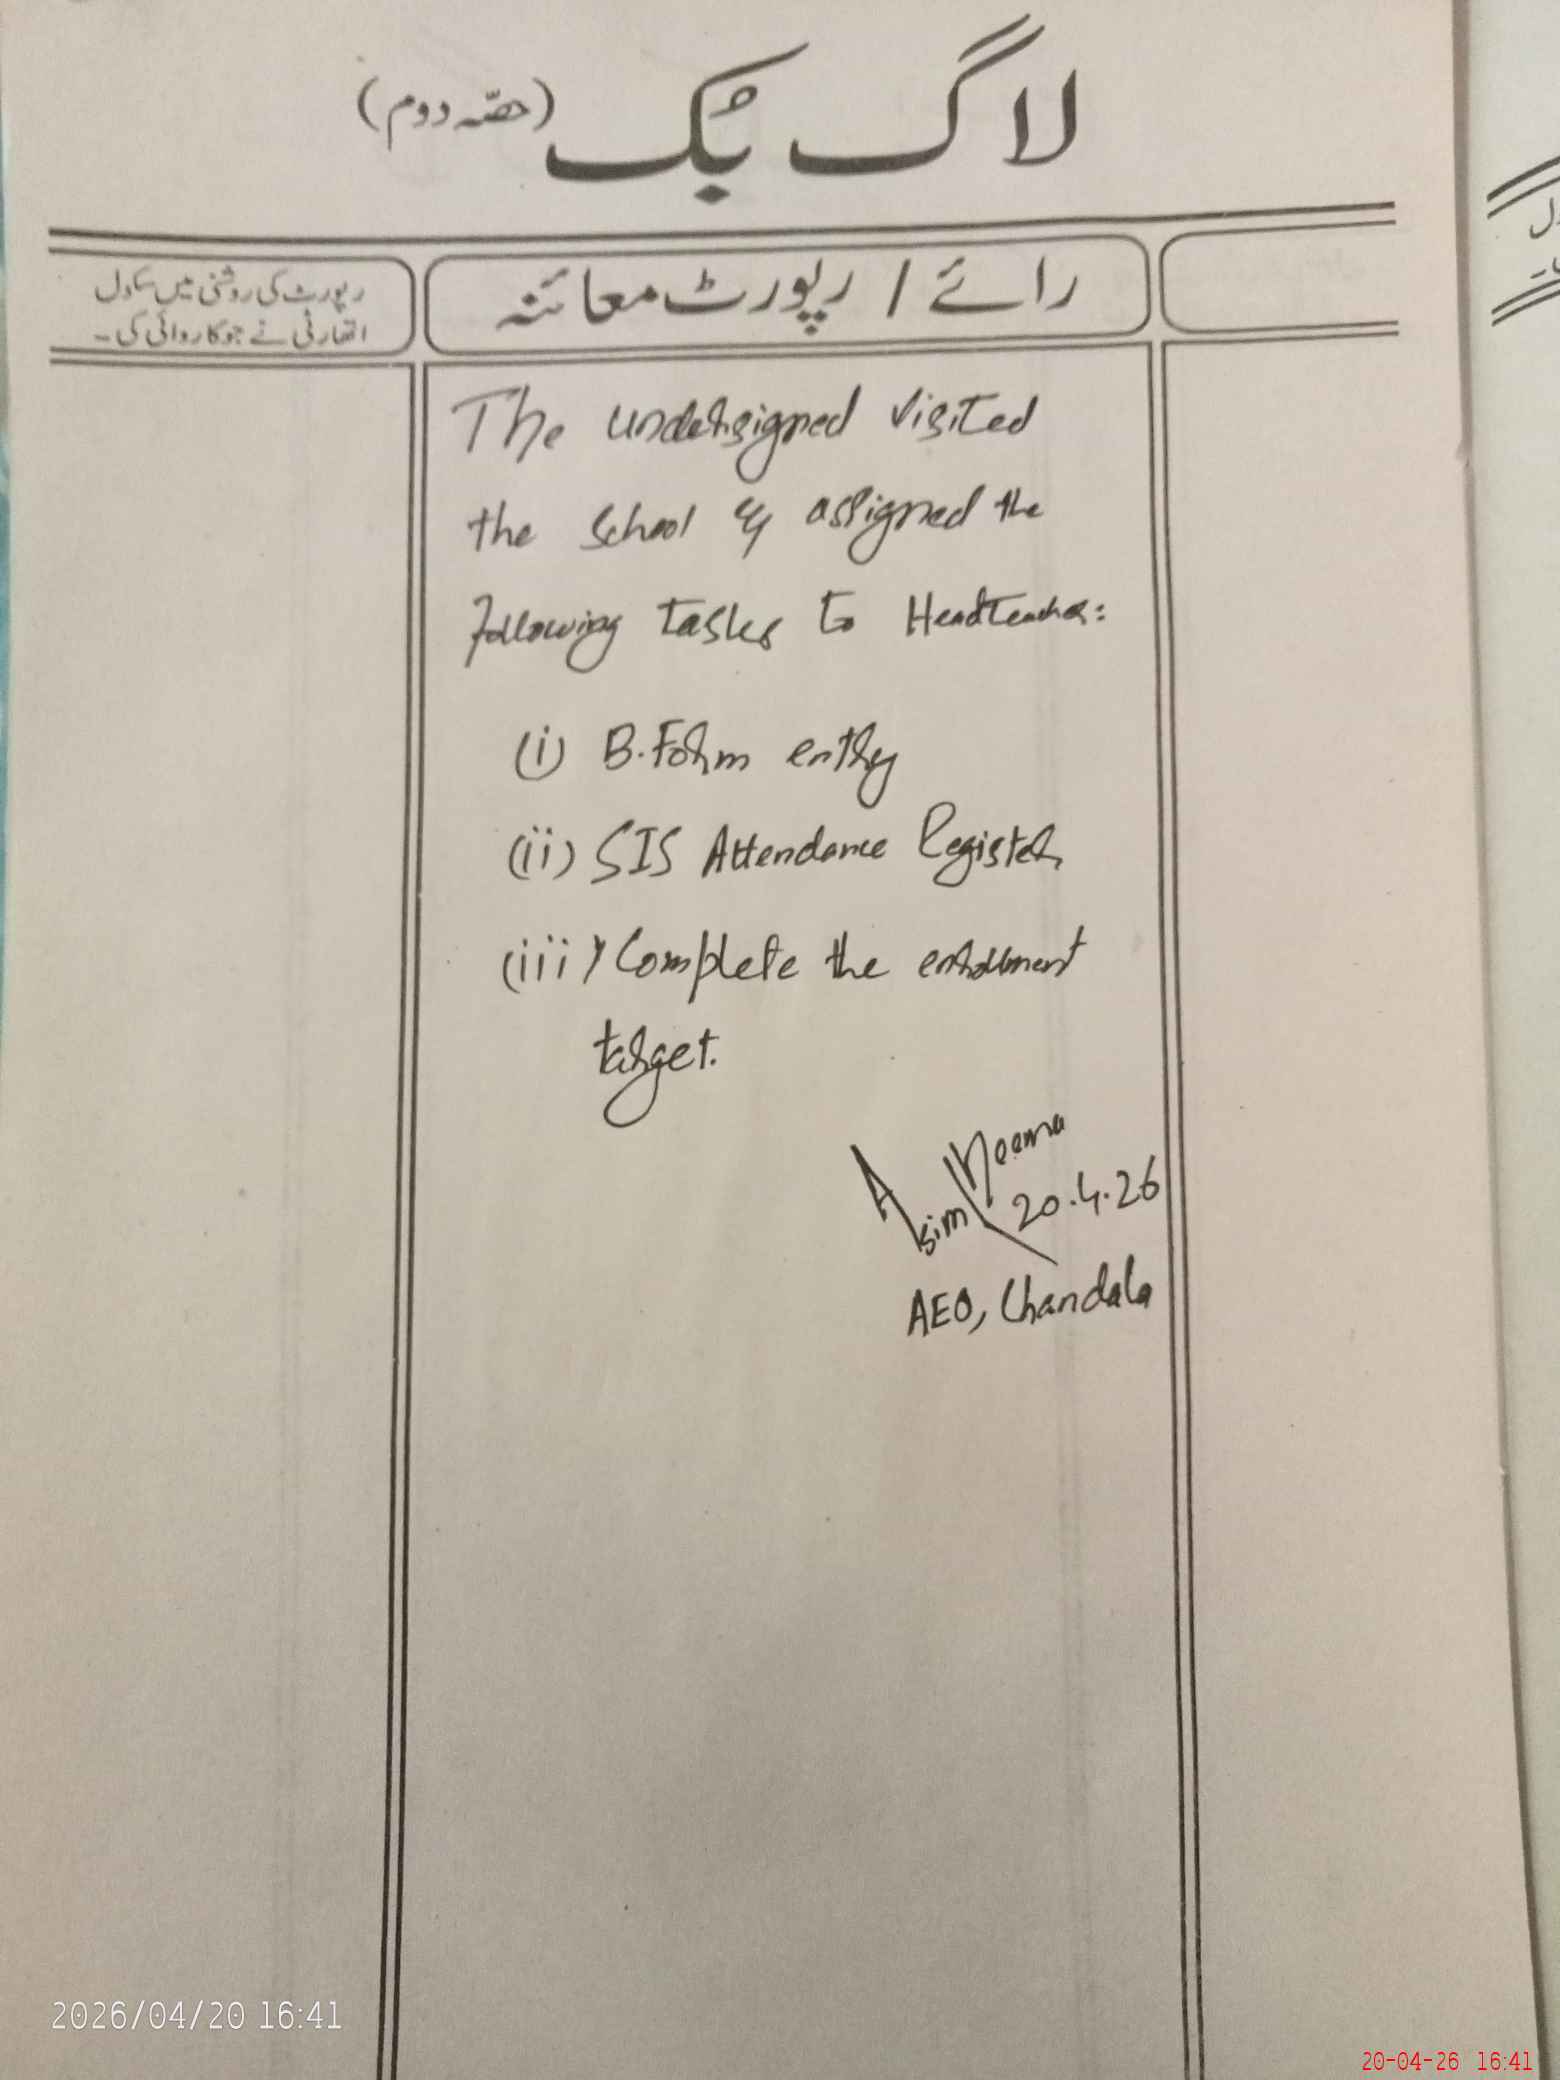 لاگ بُک (حصّہ دوم)
رائے / رپورٹ معائنہ
رپورٹ کی روشنی میں سکول
اتھارٹی نے جو کارروائی کی۔
The undersigned visited
the school & assigned the
following tasks to Headteacher:
(i) B.Form entry
(ii) SIS Attendance Register
(iii) Complete the enrollment
target.
Asim
20.4.26
AEO, Chandala
2026/04/20 16:41
20-04-26 16:41